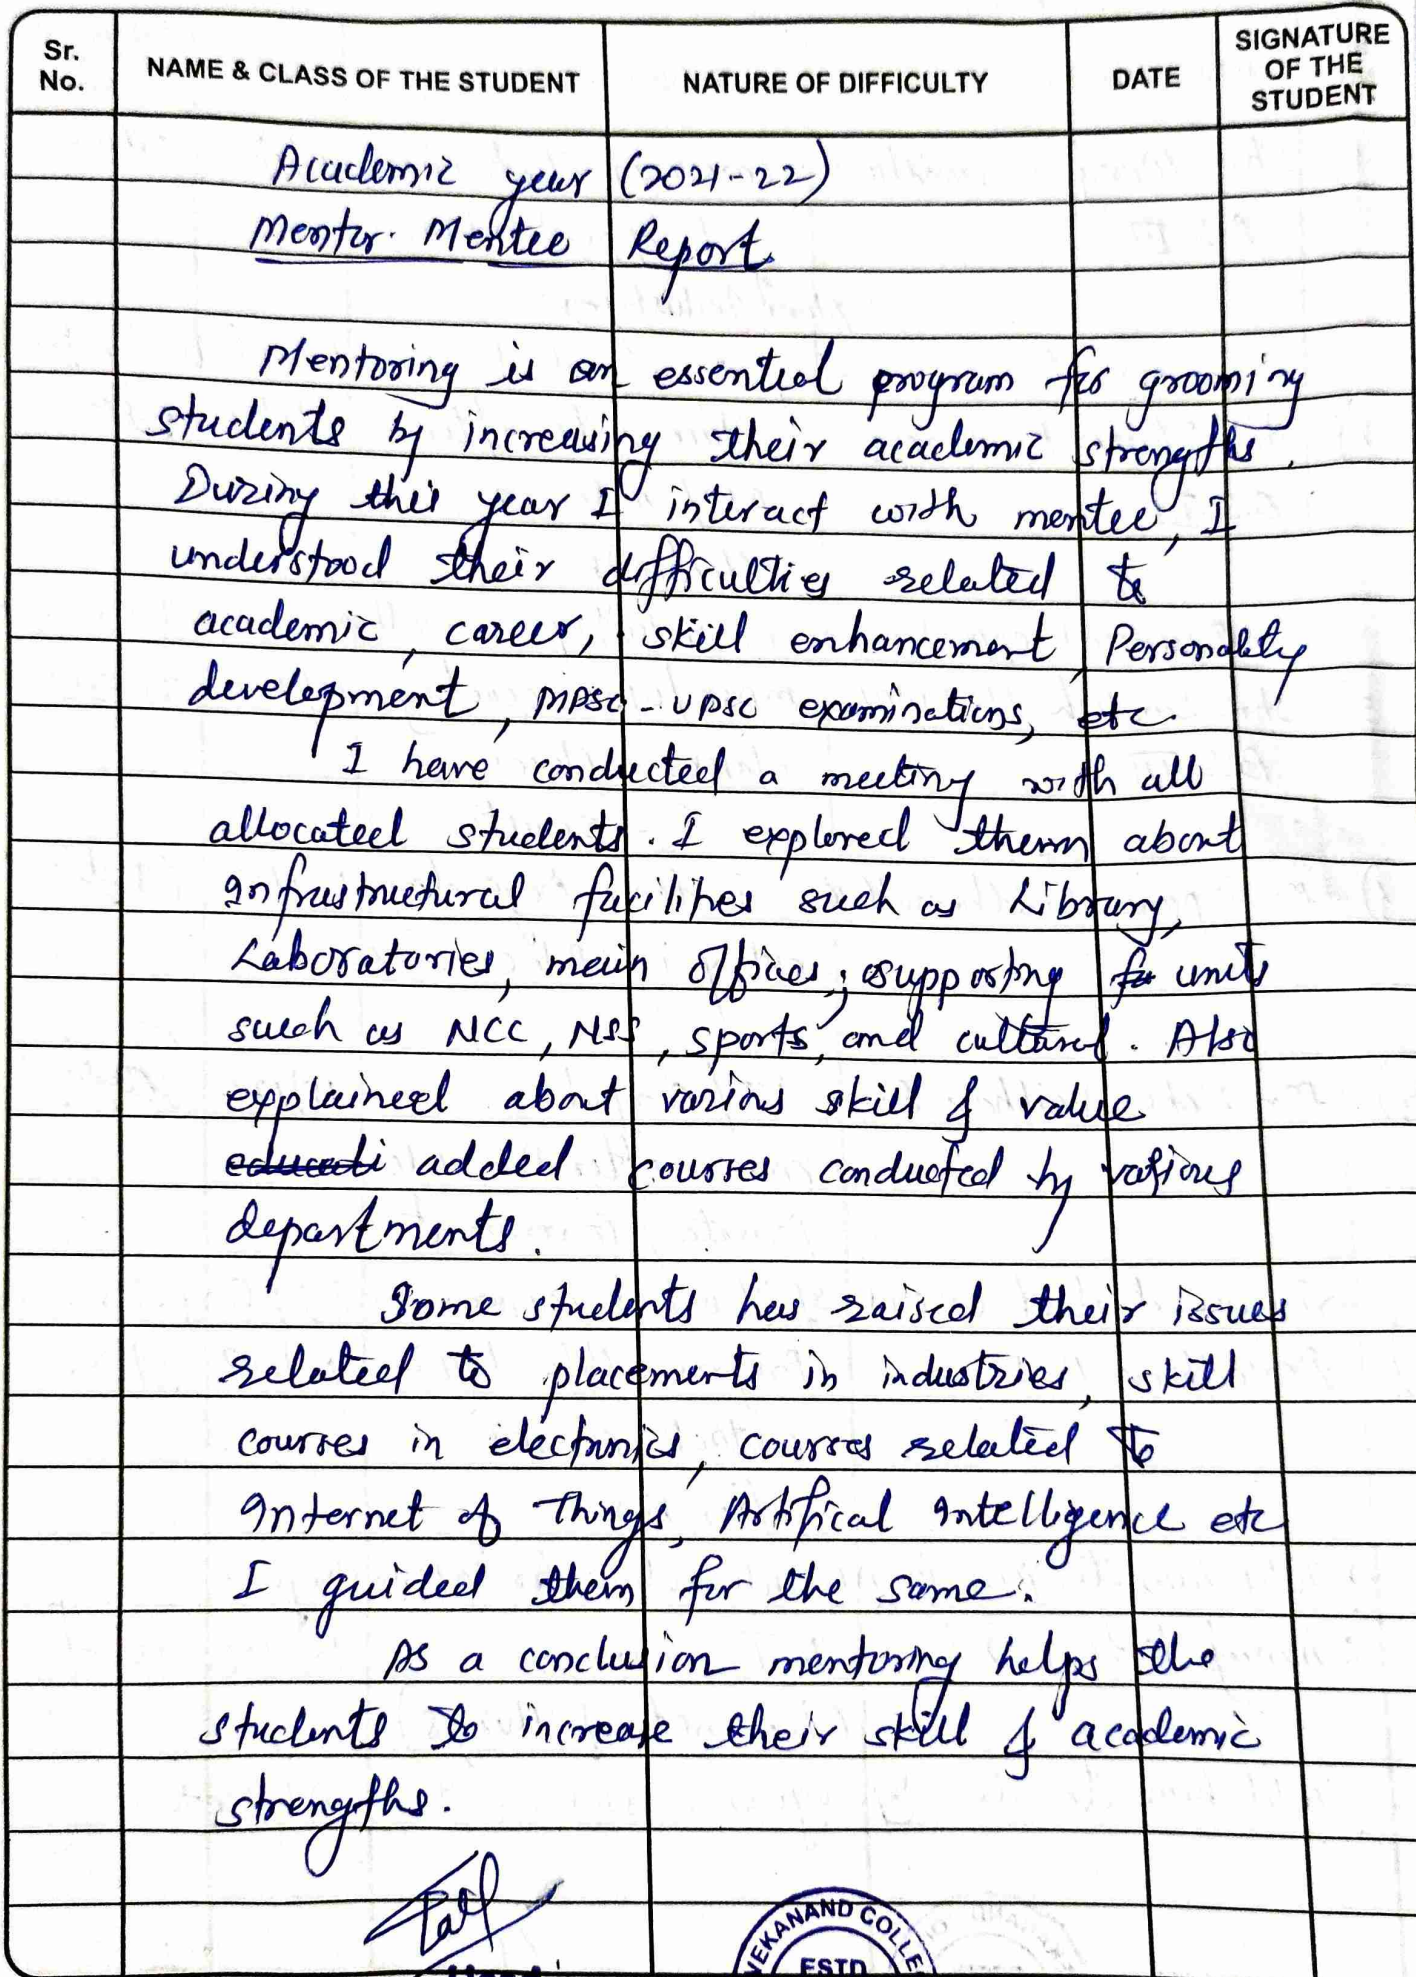 Sr. No. NAME & CLASS OF THE STUDENT NATURE OF DIFFICULTY DATE SIGNATURE OF THE STUDENT
Academic year (2021-22)
Mentor. Mentee Report
Mentoring is an essential program for grooming
students by increasing their academic strengths.
During this year I interact with mentee, I
understood their difficulties related to
academic, career, skill enhancement, Personality
development, MPSC-UPSC examinations, etc.
I have conducted a meeting with all
allocated students. I explored them about
Infrastructural facilities such as Library,
Laboratories, main offices, supporting units
such as NCC, NSS, sports, and cultural. Also
explained about various skill & value
educati added courses conducted by various
departments.
Some students has raised their issues
related to placements in industries, skill
courses in electronics, courses related to
Internet of Things, Artifical Intelligence etc
I guided them for the same.
As a conclusion mentoring helps the
students to increase their skill & academic
strengths.
NEKANAND COLLE
ESTD